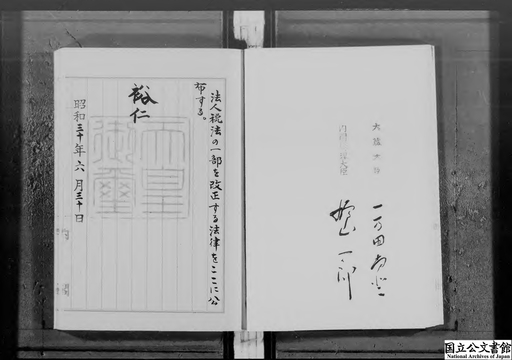 法人税法の一部を改正する法律をここに公
布する。
裕仁
天皇
御璽
昭和三十年六月三十日
大蔵大臣
一万田尚登
内閣総理大臣
鳩山一郎
国立公文書館
National Archives of Japan